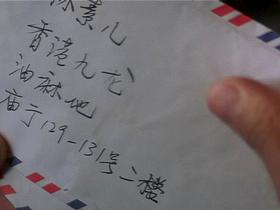 素儿
香港九龙
油麻地
庙亍129-131号二樓